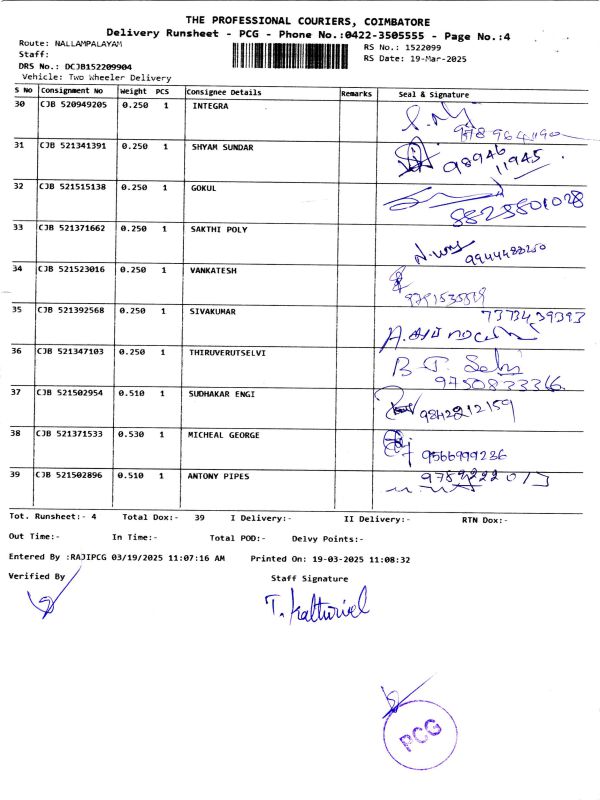 THE PROFESSIONAL COURIERS, COIMBATORE
Delivery Runsheet - PCG - Phone No.:0422-3505555 - Page No.:4
Route: NALLAMPALAYAM RS No.: 1522099
Staff: RS Date: 19-Mar-2025
DRS No.: DCJB152209904
Vehicle: Two Wheeler Delivery
S No Consignment No Weight PCS Consignee Details Remarks Seal & Signature
30 CJB 520949205 0.250 1 INTEGRA
31 CJB 521341391 0.250 1 SHYAM SUNDAR 98946 11945
32 CJB 521515138 0.250 1 GOKUL 8825801028
33 CJB 521371662 0.250 1 SAKTHI POLY
34 CJB 521523016 0.250 1 VANKATESH
35 CJB 521392568 0.250 1 SIVAKUMAR 7373439393
36 CJB 521347103 0.250 1 THIRUVERUTSELVI 9750833366
37 CJB 521502954 0.510 1 SUDHAKAR ENGI 9842212159
38 CJB 521371533 0.530 1 MICHEAL GEORGE 9566999236
39 CJB 521502896 0.510 1 ANTONY PIPES
Tot. Runsheet:- 4 Total Dox:- 39 I Delivery:- II Delivery:- RTN Dox:-
Out Time:- In Time:- Total POD:- Delvy Points:-
Entered By :RAJIPCG 03/19/2025 11:07:16 AM Printed On: 19-03-2025 11:08:32
Verified By Staff Signature
PCG